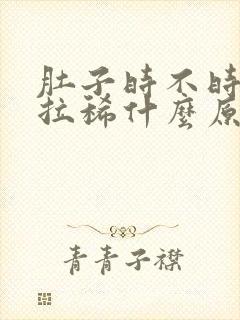 肚子时不时
拉稀什麼原
青青子襟